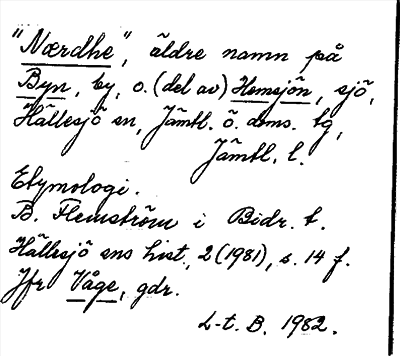 "Nærdhe", äldre namn på
Byn, by, o. (del av) Hemsjön, sjö,
Hällesjö sn, Jämtl. ö. doms. tg,
Jämtl. l.
Etymologi.
B. Flemström i Bidr. t.
Hällesjö sns hist., 2 (1981), s. 14 f.
Jfr Våge, gdr.
L-t. B. 1982.